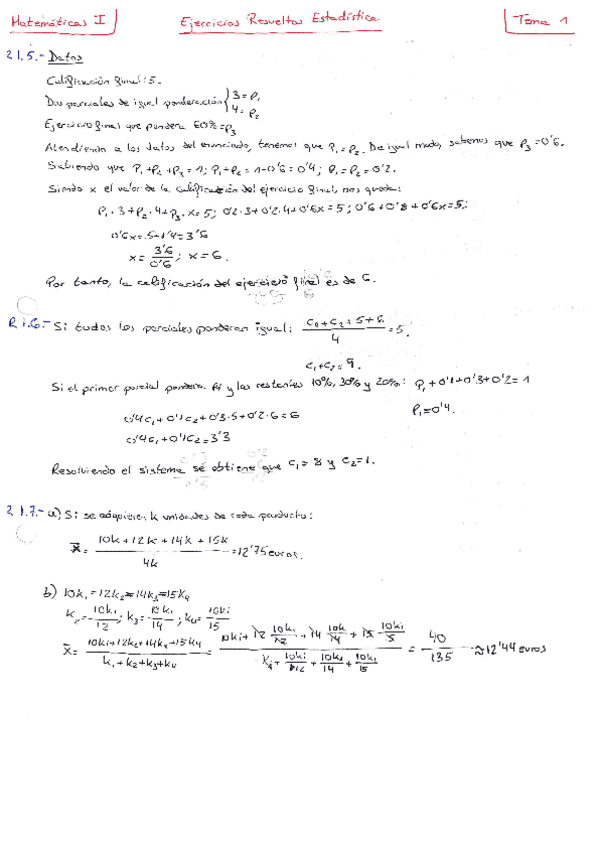 Matemáticas I
Ejercicios Resueltos Estadística
Tema 1
2.1.5.- Datos
Calificación final: 5.
Dos parciales de igual ponderación { 3 = P₁
4 = P₂
Ejercicio final que pondera 60% = P₃
Atendiendo a los datos del enunciado, tenemos que P₁ = P₂. De igual modo, sabemos que P₃ = 0'6.
Sabiendo que P₁ + P₂ + P₃ = 1; P₁ + P₂ = 1 - 0'6 = 0'4; P₁ = P₂ = 0'2.
Siendo x el valor de la calificación del ejercicio final, nos queda:
P₁ · 3 + P₂ · 4 + P₃ · x = 5; 0'2·3 + 0'2·4 + 0'6x = 5; 0'6 + 0'8 + 0'6x = 5;
0'6x = 5 - 1'4 = 3'6
x = 3'6 / 0'6; x = 6.
Por tanto, la calificación del ejercicio final es de 6.
R 1.6.- Si todos los parciales ponderan igual: (C₁ + C₂ + 5 + 6) / 4 = 5.
C₁ + C₂ = 9.
Si el primer parcial pondera P₁ y los restantes 10%, 30% y 20%: P₁ + 0'1 + 0'3 + 0'2 = 1
P₁ = 0'4.
0'4C₁ + 0'1C₂ + 0'3·5 + 0'2·6 = 6
0'4C₁ + 0'1C₂ = 3'3
Resolviendo el sistema se obtiene que C₁ = 8 y C₂ = 1.
2.1.7.- a) Si se adquieren k unidades de cada producto:
x̄ = (10k + 12k + 14k + 15k) / 4k = 12'75 euros.
b) 10k₁ = 12k₂ = 14k₃ = 15k₄
k₂ = 10k₁/12; k₃ = 10k₁/14; k₄ = 10k₁/15
x̄ = (10k₁ + 12k₂ + 14k₃ + 15k₄) / (k₁ + k₂ + k₃ + k₄) = = 40 / ≈ 12'44 euros